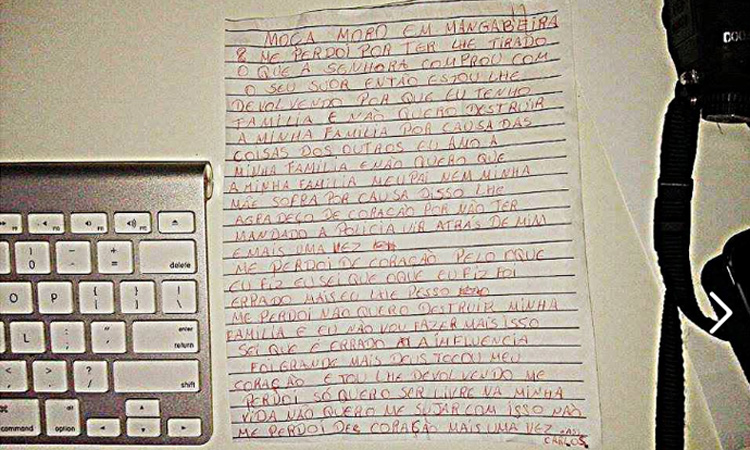 MOÇA MORO EM MANGABEIRA
8 ME PERDOI POR TER LHE TIRADO
O QUE A SENHORA COMPROU COM
O SEU SUOR ENTÃO ESTOU LHE
DEVOLVENDO POR QUE EU TENHO
FAMILIA E NÃO QUERO DESTRUIR
A MINHA FAMILIA POR CAUSA DAS
COISAS DOS OUTROS EU AMO A
MINHA FAMILIA E NÃO QUERO QUE
A MINHA FAMILIA MEU PAI NEM MINHA
MÃE SOFRA POR CAUSA DISSO LHE
AGRADEÇO DE CORAÇÃO POR NÃO TER
MANDADO A POLICIA VIR ATRÁS DE MIM
E MAIS UMA VEZ
ME PERDOI DE CORAÇÃO PELO OQUE
EU FIZ EU SEI QUE OQUE EU FIZ FOI
ERRADO MAIS EU LHE PESSO
ME PERDOI NÃO QUERO DESTRUIR MINHA
FAMILIA E EU NÃO VOU FAZER MAIS ISSO
SEI QUE É ERRADO A INFLUENCIA
FOI GRANDE MAIS DEUS TOCOU MEU
CORAÇÃO E TOU LHE DEVOLVENDO ME
PERDOI SÓ QUERO SER LIVRE NA MINHA
VIDA NÃO QUERO ME SUJAR COM ISSO NÃO
ME PERDOI DE CORAÇÃO MAIS UMA VEZ
CARLOS
delete
enter
return
shift
command
option
O P { [ } ] | \
L : ; " '
< , > . ? /